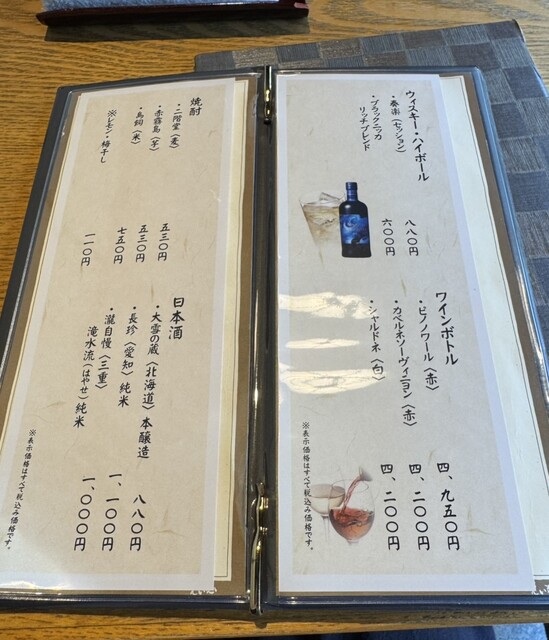 ウィスキー・ハイボール
・奏楽(セッション) 八八〇円
・ブラックニッカ
リッチブレンド 六〇〇円
ワインボトル
・ピノノワール(赤) 四、九五〇円
・カベルネソーヴィニヨン(赤) 四、二〇〇円
・シャルドネ(白) 四、二〇〇円
※表示価格はすべて税込み価格です。
焼酎
・二階堂(麦) 五三〇円
・赤霧島(芋) 五三〇円
・鳥飼(米) 七五〇円
※レモン・梅干し 一一〇円
日本酒
・大雪の蔵〈北海道〉本醸造 八八〇円
・長珍〈愛知〉純米 一、一〇〇円
・瀧自慢〈三重〉
滝水流(はやせ)純米 一、〇〇〇円
※表示価格はすべて税込み価格です。